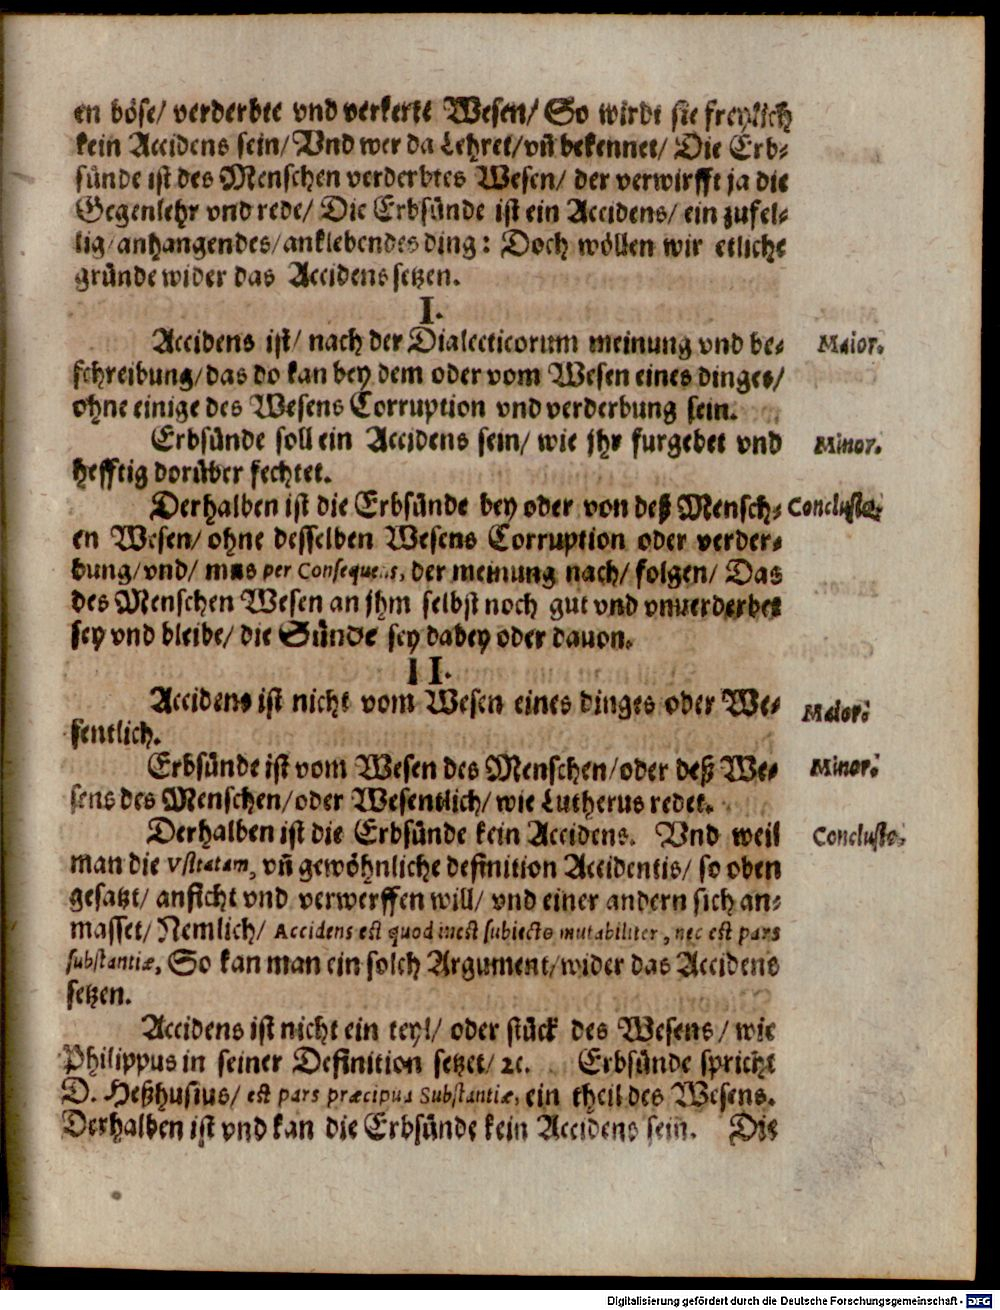 en böse/ verderbte vnd verkerte Wesen/ So wirdt sie freylich
kein Accidens sein/ Vnd wer da Lehret/ vñ bekennet/ Die Erb-
sünde ist des Menschen verderbtes Wesen/ der verwirfft ja die
Gegenlehr vnd rede/ Die Erbsünde ist ein Accidens/ ein zufel-
lig/ anhangendes/ anklebendes ding: Doch wöllen wir etliche
gründe wider das Accidens setzen.
I.
Accidens ist/ nach der Dialecticorum meinung vnd be-
Maior.
schreibung/ das do kan bey dem oder vom Wesen eines dinges/
ohne einige des Wesens Corruption vnd verderbung sein.
Erbsünde soll ein Accidens sein/ wie jhr furgebet vnd
Minor.
hefftig dorüber fechtet.
Derhalben ist die Erbsünde bey oder von deß Mensch-
Conclusio.
en Wesen/ ohne desselben Wesens Corruption oder verder-
bung/ vnd/ mus per Consequens, der meinung nach/ folgen/ Das
des Menschen Wesen an jhm selbst noch gut vnd vnuerderbet
sey vnd bleibe/ die Sünde sey dabey oder dauon.
II.
Accidens ist nicht vom Wesen eines dinges oder We-
Maior.
sentlich.
Erbsünde ist vom Wesen des Menschen/ oder deß We-
Minor.
sens des Menschen/ oder Wesentlich/ wie Lutherus redet.
Derhalben ist die Erbsünde kein Accidens. Vnd weil
Conclusio.
man die Vsitatam, vñ gewöhnliche definition Accidentis/ so oben
gesatzt/ anficht vnd verwerffen will/ vnd einer andern sich an-
masset/ Nemlich/ Accidens est quod inest subiecto mutabiliter, nec est pars
substantiæ, So kan man ein solch Argument/ wider das Accidens
setzen.
Accidens ist nicht ein teyl/ oder stück des Wesens/ wie
Philippus in seiner Definition setzet/ ꝛc. Erbsünde spricht
D. Heßhusius/ est pars præcipua Substantiæ, ein theil des Wesens.
Derhalben ist vnd kan die Erbsünde kein Accidens sein. Die
Digitalisierung gefördert durch die Deutsche Forschungsgemeinschaft - DFG